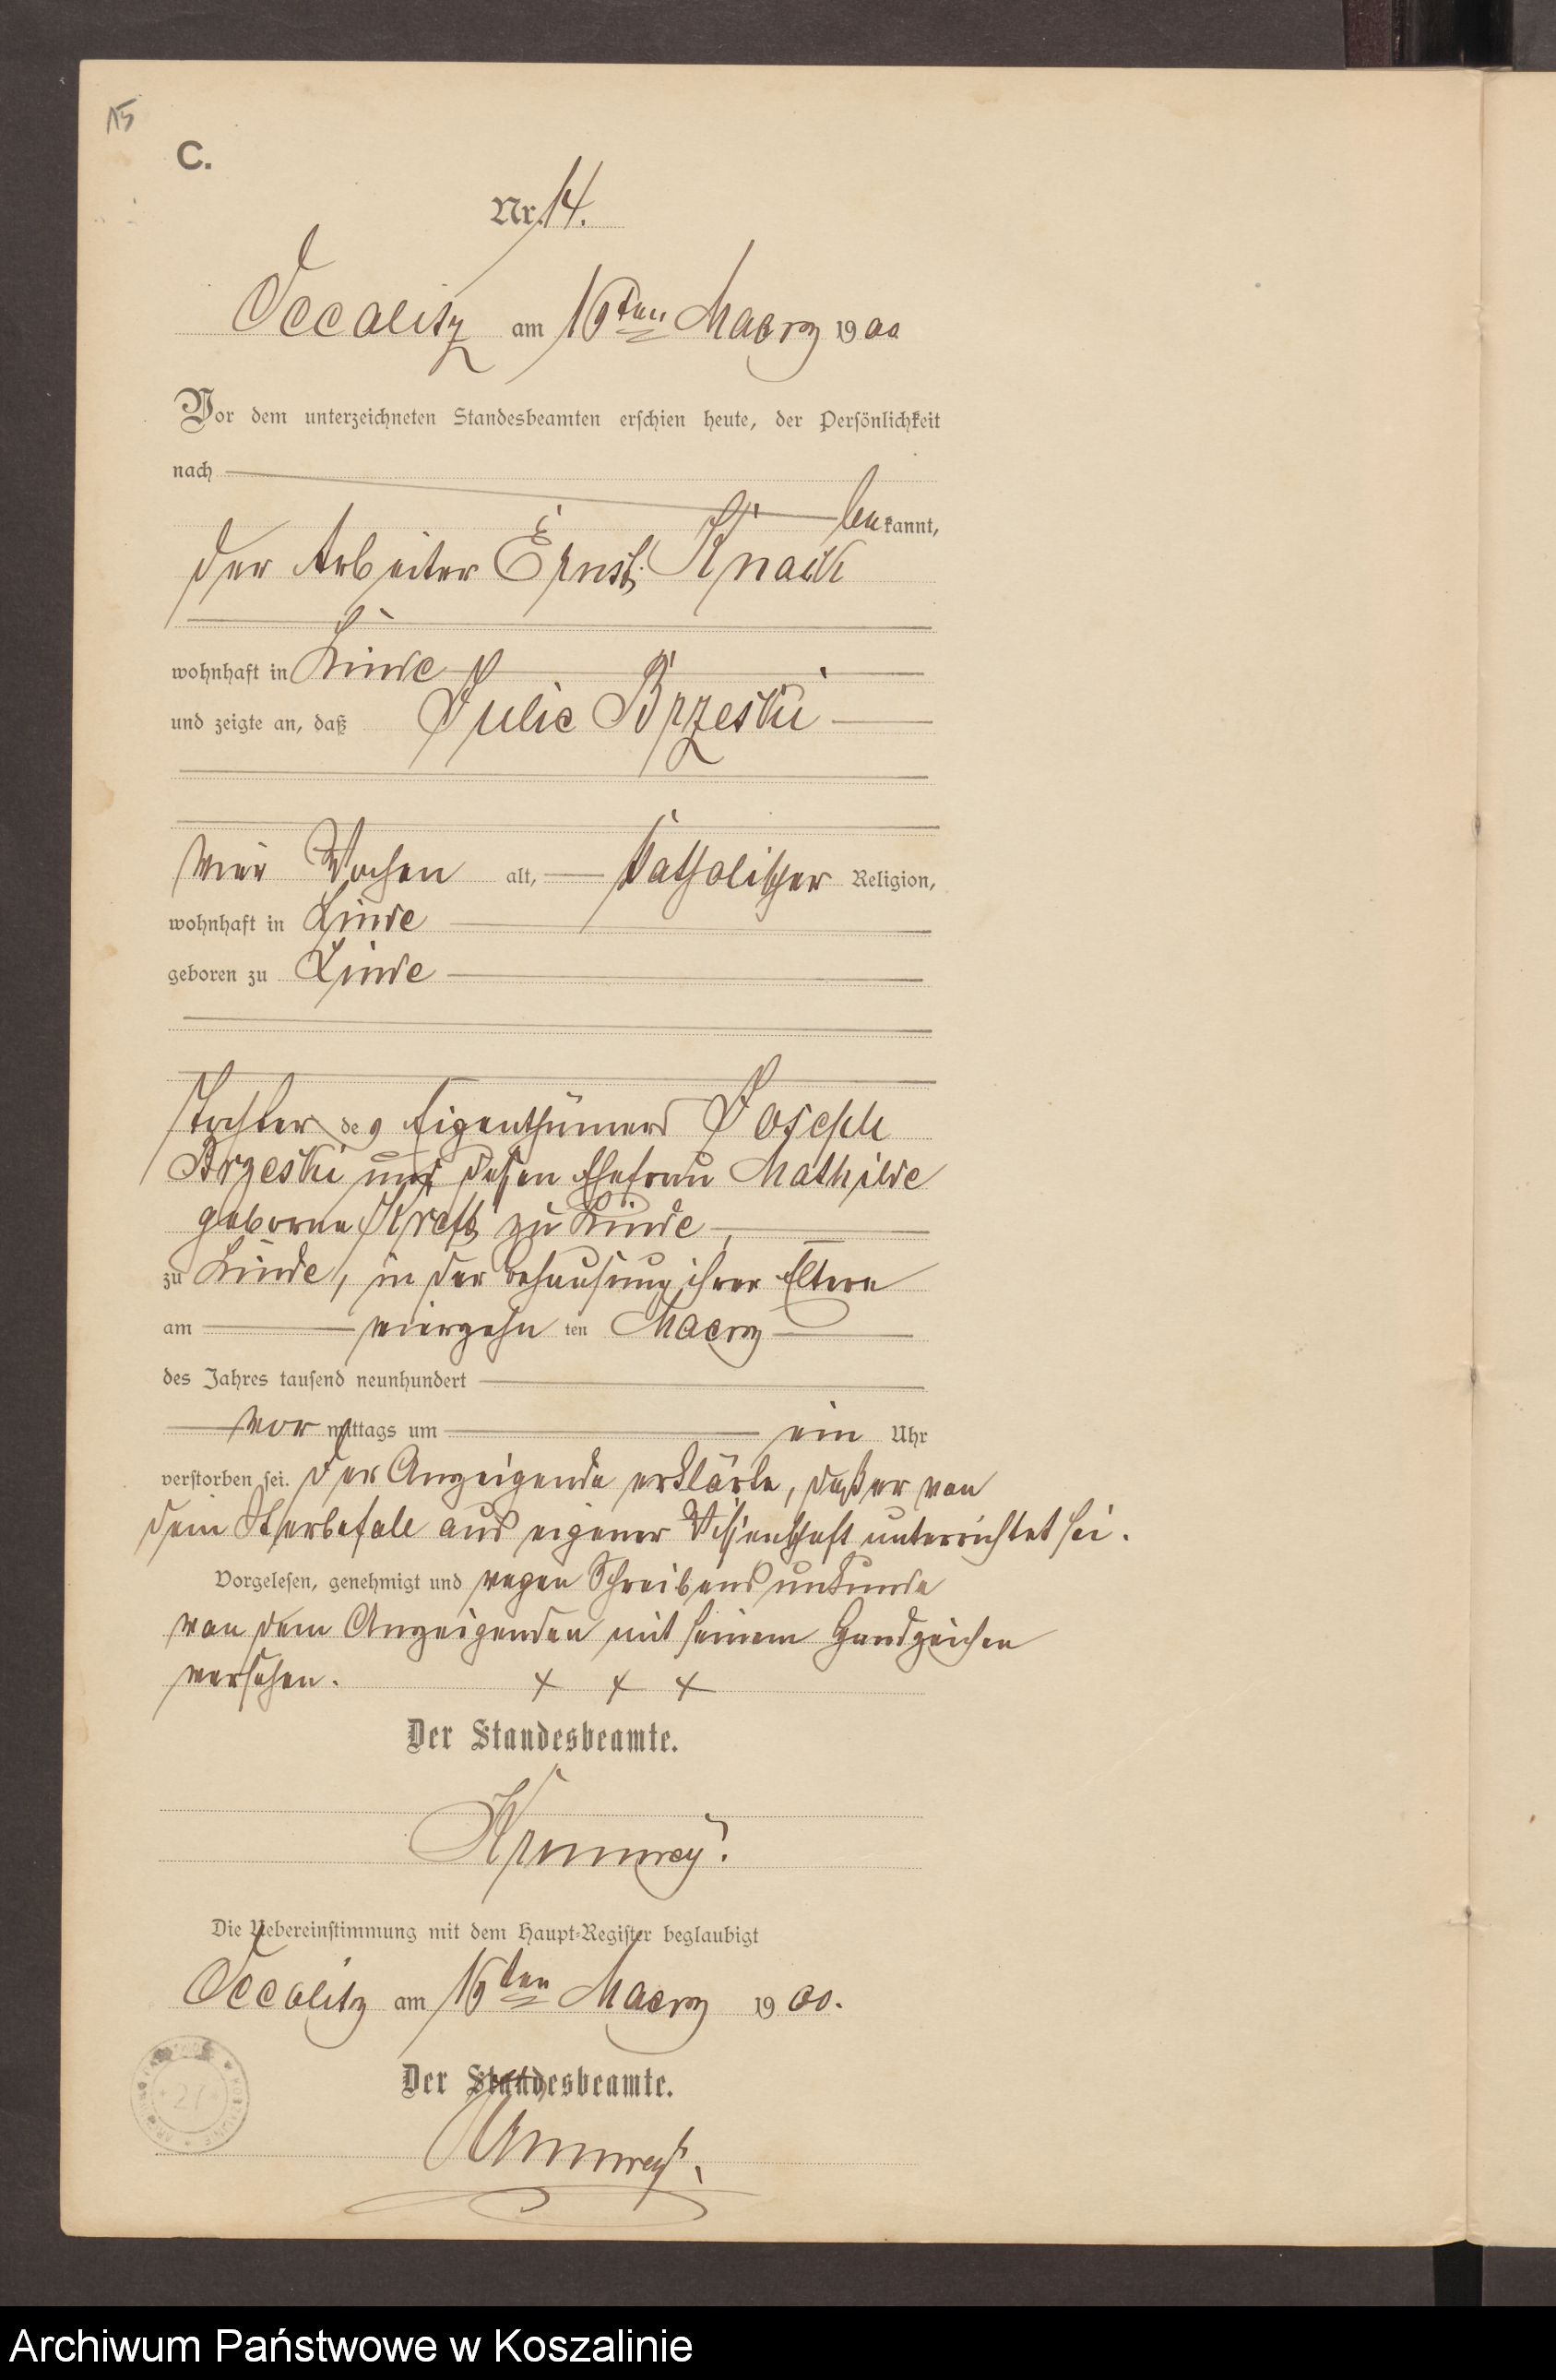 15
C.
Nr. 14.
Occalitz am 16ten Maerz 1900
Vor dem unterzeichneten Standesbeamten erschien heute, der Persönlichkeit
nach
bekannt,
der Arbeiter Ernst Knack
wohnhaft in Linde
und zeigte an, daß Julie Brzeski
vier Wochen alt, katholischer Religion,
wohnhaft in Linde
geboren zu Linde
Tochter des Eigenthümers Joseph
Brzeski und dessen Ehefrau Mathilde
geborne Kreft zu Linde
zu Linde, in der Behausung ihrer Eltern
am vierzehn ten Maerz
des Jahres tausend neunhundert
vor mittags um ein Uhr
verstorben sei. Der Anzeigende erklärte, daß er von
dem Sterbefalle aus eigener Wissenschaft unterrichtet sei.
Vorgelesen, genehmigt und wegen Schreibensunkunde
von dem Anzeigenden mit seinem Handzeichen
versehen. + + +
Der Standesbeamte.
Die Uebereinstimmung mit dem Haupt-Register beglaubigt
Occalitz am 16ten Maerz 1900.
Der Standesbeamte.
27
Archiwum Państwowe w Koszalinie